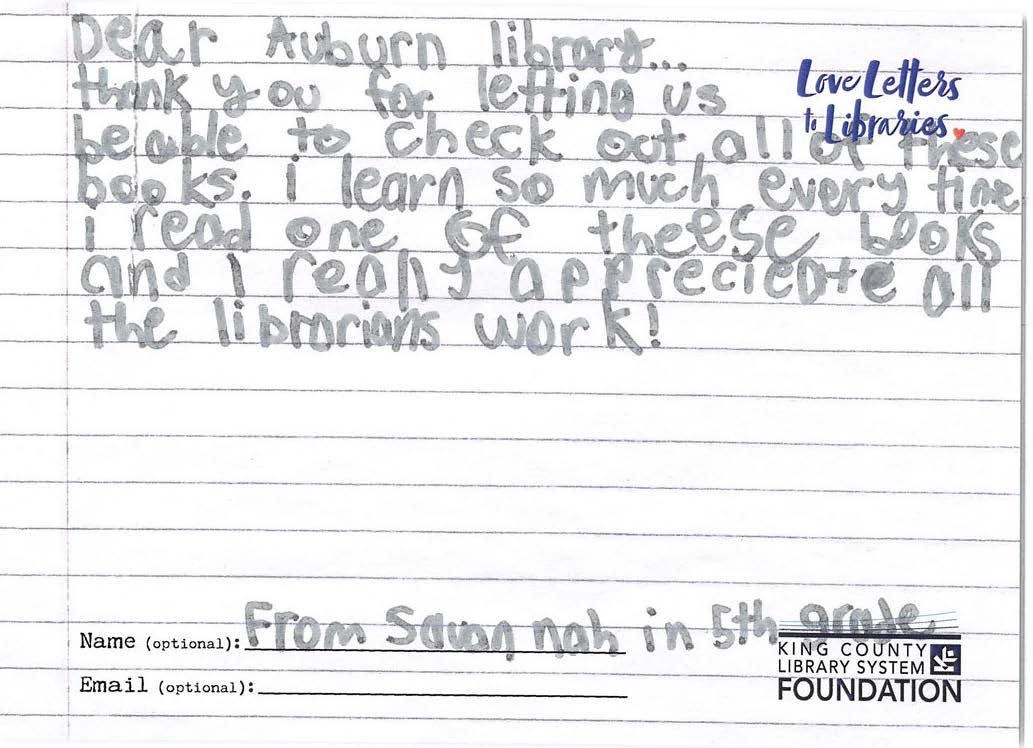 Dear Auburn library...
thank you for letting us
Love Letters
to Libraries.
be able to check out all of these
books. i learn so much every time
i read one of theese books
and I really appreciate all
the librarians work!
Name (optional): From Savannah in 5th grade
KING COUNTY
LIBRARY SYSTEM
FOUNDATION
Email (optional):